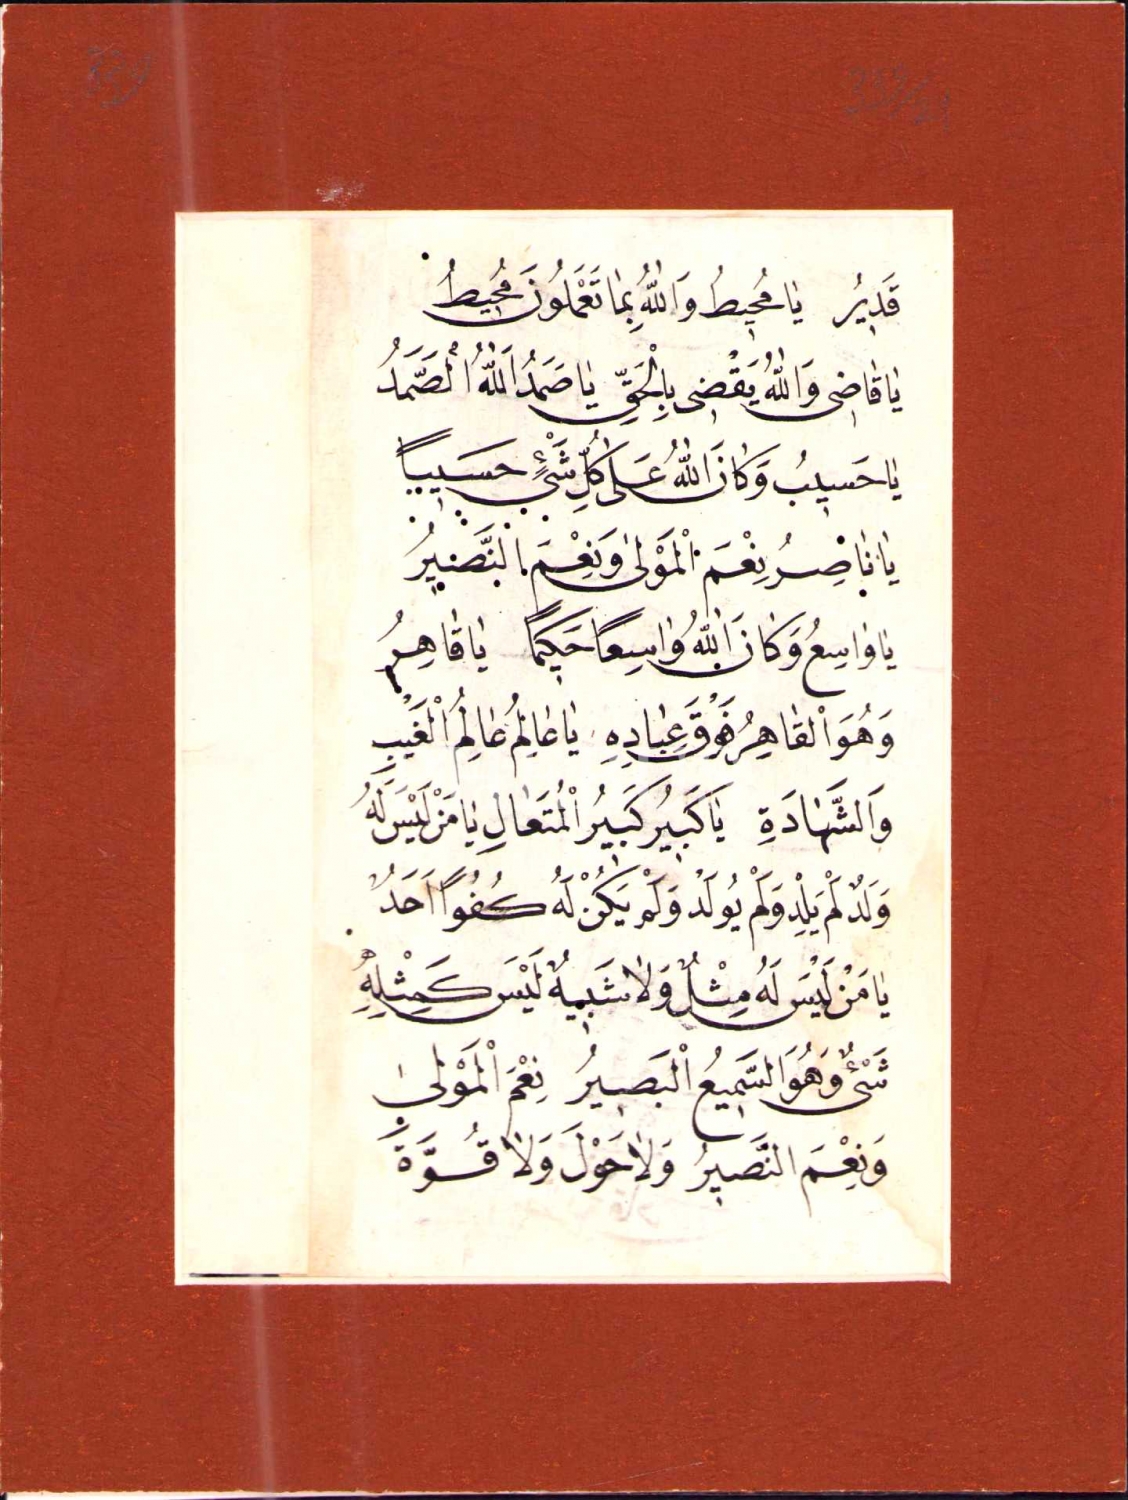 قَدِيرُ يَا مُحِيطُ وَاللهُ بِمَا تَعْمَلُونَ مُحِيطُ
يَا قَاضِى وَاللهُ يَقْضِى بِالْحَقِّ يَا صَمَدُ اَللهُ الْصَّمَدُ
يَا حَسِيبُ وَكَانَ اللهُ عَلَى كُلِّ شَىْءٍ حَسِيباً
يَا نَاصِرُ نِعْمَ الْمَوْلَى وَنِعْمَ النَّصِيرُ
يَا وَاسِعُ وَكَانَ اللهُ وَاسِعًا حَكِيمًا يَا قَاهِرُ
وَهُوَ الْقَاهِرُ فَوْقَ عِبَادِهِ يَا عَالِمُ عَالِمُ الْغَيْبِ
وَالشَّهَادَةِ يَا كَبِيرُ كَبِيرُ الْمُتَعَالِ يَا مَنْ لَيْسَ لَهُ
وَلَدٌ لَمْ يَلِدْ وَلَمْ يُولَدْ وَلَمْ يَكُنْ لَهُ كُفُوًا اَحَدٌ
يَا مَنْ لَيْسَ لَهُ مِثْلٌ وَلَا شَبِيهٌ لَيْسَ كَمِثْلِهِ
شَىْءٌ وَهُوَ السَّمِيعُ الْبَصِيرُ نِعْمَ الْمَوْلَى
وَنِعْمَ النَّصِيرُ وَلَا حَوْلَ وَلَا قُوَّةَ